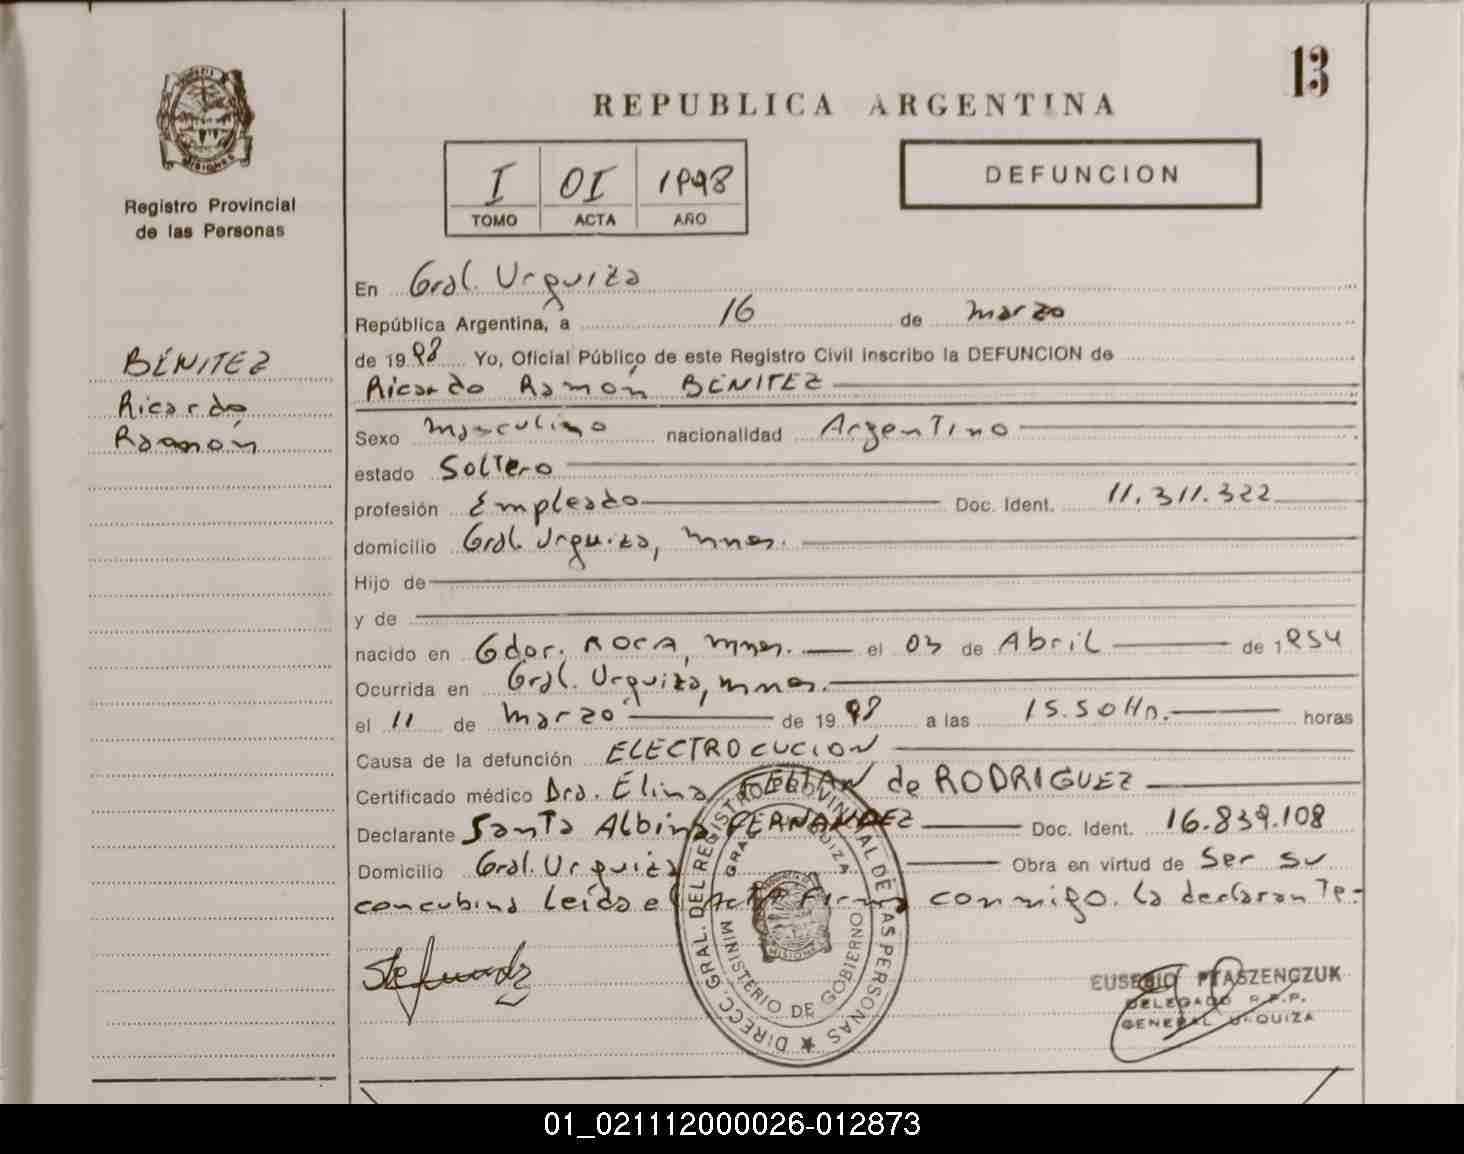 13
REPUBLICA ARGENTINA
MISIONES
Registro Provincial
de las Personas
I OI 1998
TOMO ACTA AÑO
DEFUNCION
BENITEZ
Ricardo
Ramón
En Gral. Urquiza
República Argentina, a 16 de marzo
de 1998 Yo, Oficial Público de este Registro Civil inscribo la DEFUNCION de
Ricardo Ramón BENITEZ
Sexo masculino nacionalidad Argentino
estado Soltero
profesión Empleado Doc. Ident. 11.311.322
domicilio Gral. Urquiza, mnes.
Hijo de
y de
nacido en Gdor. ROCA, mnes. el 03 de Abril de 1954
Ocurrida en Gral. Urquiza, mnes.
el 11 de marzo de 1998 a las 15.50 Hs. horas
Causa de la defunción ELECTROCUCION
Certificado médico Dra. Elina de RODRIGUEZ
Declarante Santa Albina FERNANDEZ Doc. Ident. 16.839.108
Domicilio Gral. Urquiza Obra en virtud de Ser su
concubina leída el Acta firma conmigo. la declarante.-
DIRECC. GRAL. DEL REGISTRO PROVINCIAL DE LAS PERSONAS
MINISTERIO DE GOBIERNO
GRAL. URQUIZA
MISIONES
EUSEBIO PTASZENCZUK
DELEGADO R.P.P.
GENERAL URQUIZA
01_021112000026-012873